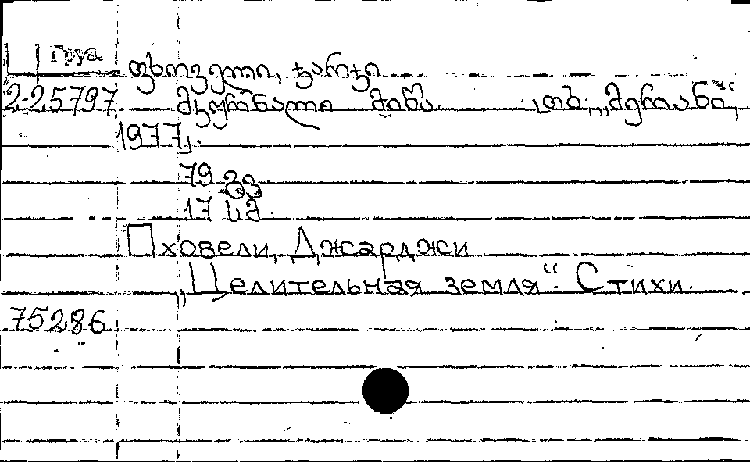 Груз
ფხოველი, ჯარჯი
2-25797 მკურნალი მიწა. თბ., „მერანი“,
1977.
79 გვ.
17 სმ.
Пховели, Джарджи
„Целительная земля“. Стихи.
75286